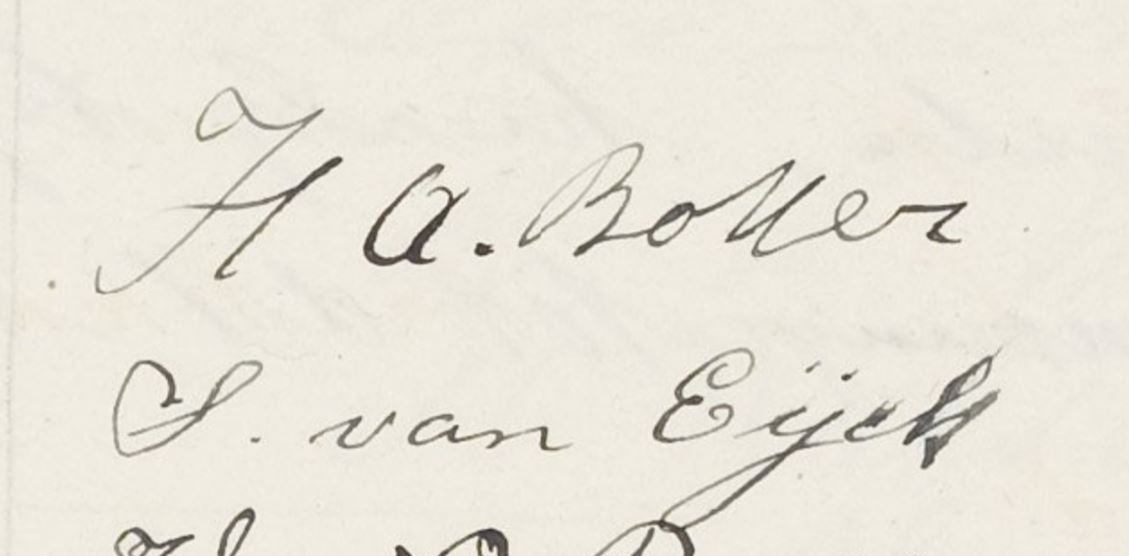 H A. Boller
S. van Eijck